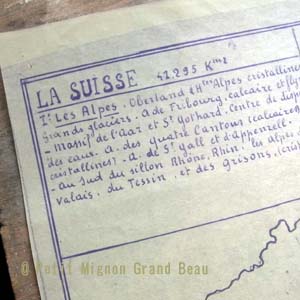 LA SUISSE 42.295 Km2
I: Les Alpes. Oberland & Htes Alpes cristallines
Grands glaciers. A. de Fribourg, calcaire et
- Massif de l'Aar et St Gothard. Centre de
des eaux. A. des quatre Cantons (calcaires
cristallines). A. de St gall et d'Appenzell.
- Au Sud du sillon Rhône, Rhin: les alpes
valais, du Tessin et des Grisons,
Mignon Grand Beau